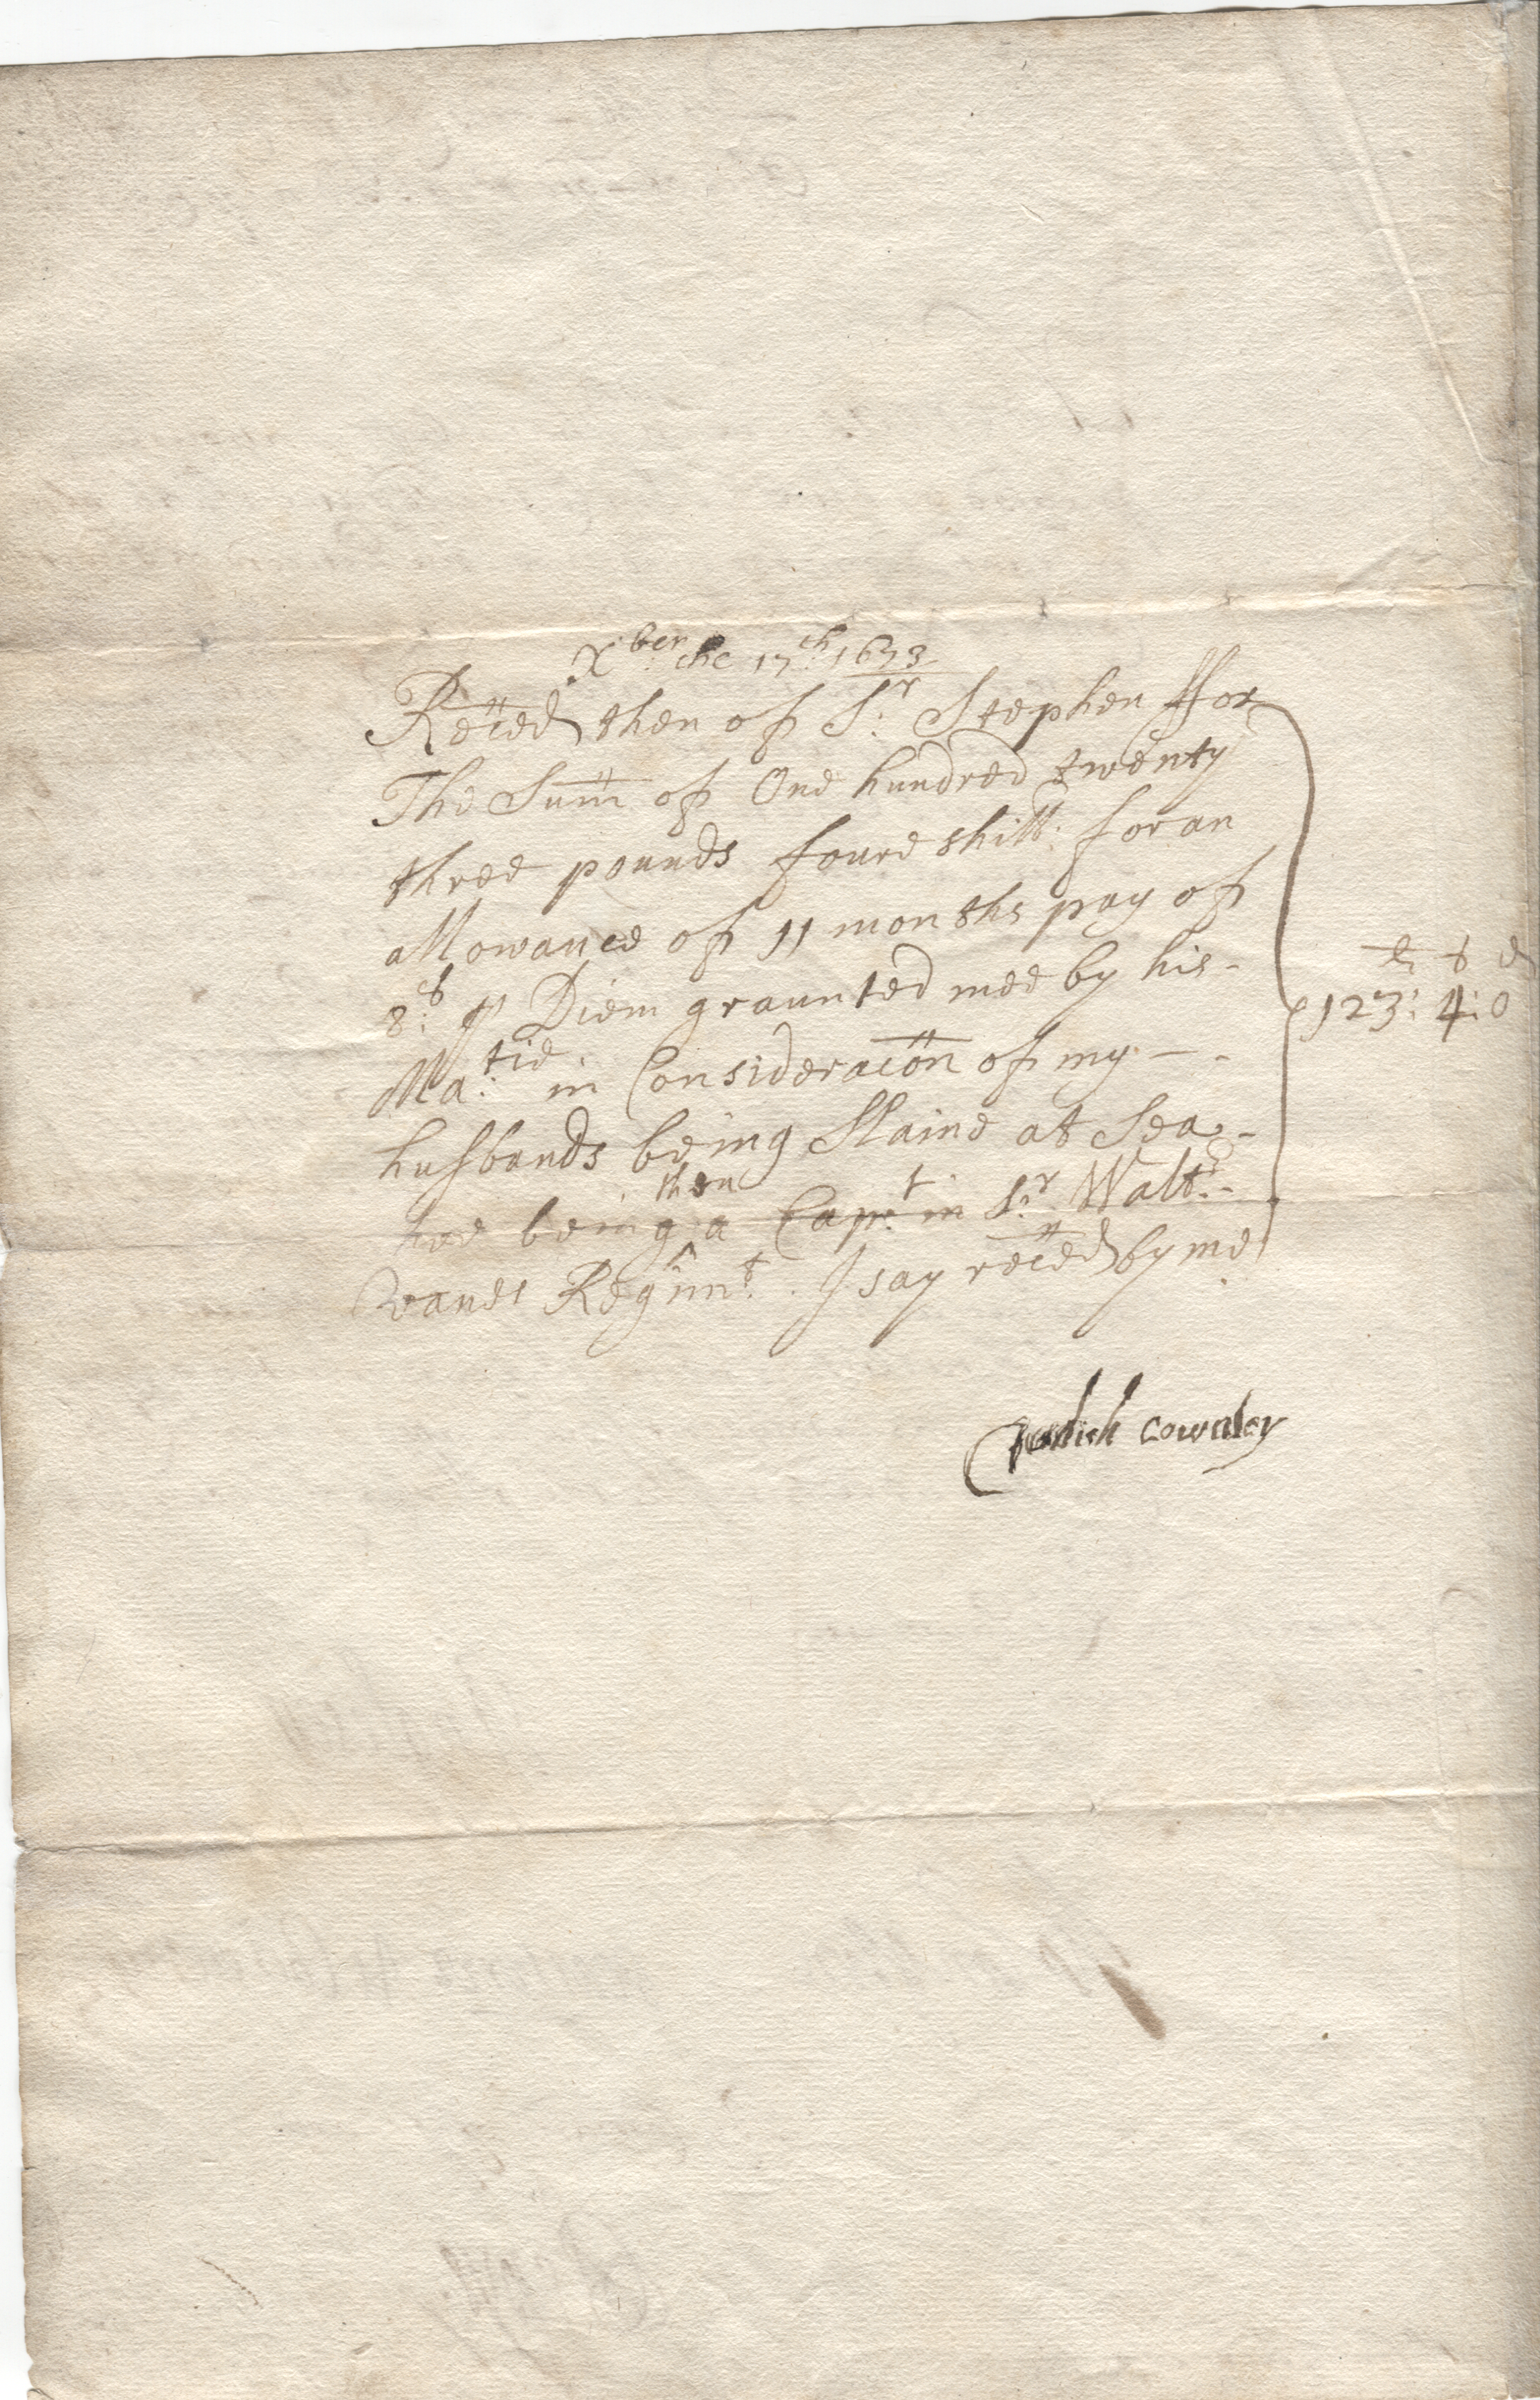 Xber the 17th 1673
Reced then of Sr Stephen ffox
The Sum of One hundred twenty
three pounds foure shill: for an
allowance of 11 months pay of
8s p Diem graunted mee by his -
Ma:tie in Consideracon of my - -
husbands being Slaine at Sea -
hee being then a Capt: in Sr Walt:r -
Vanes Regimt. I say reced by me
li s d
123: 4: 0
Cownley